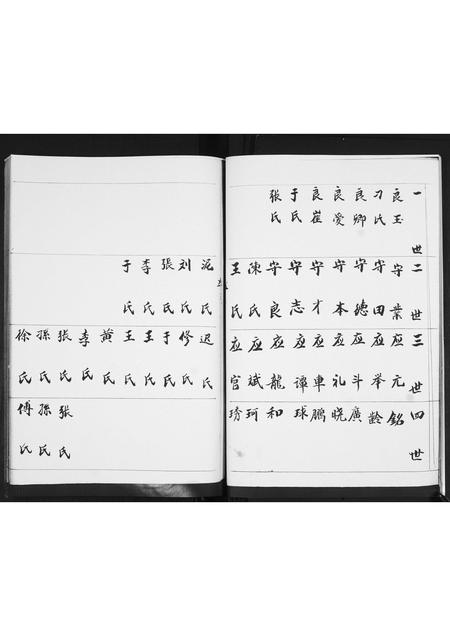 一世
良玉
刁氏
良卿
良愛
良崔
于氏
張氏
二世
守業
守田
守德
守本
守才
守志
守良
陳氏
王氏
泥氏
刘氏
張氏
李氏
于氏
三世
应元
应举
应斗
应礼
应車
应譚
应龍
应斌
应宫
迟氏
修氏
于氏
王氏
王氏
黄氏
李氏
张氏
孫氏
徐氏
四世
銘
齡
廣
晓
鵬
球
和
珂
琇
张氏
孫氏
傅氏